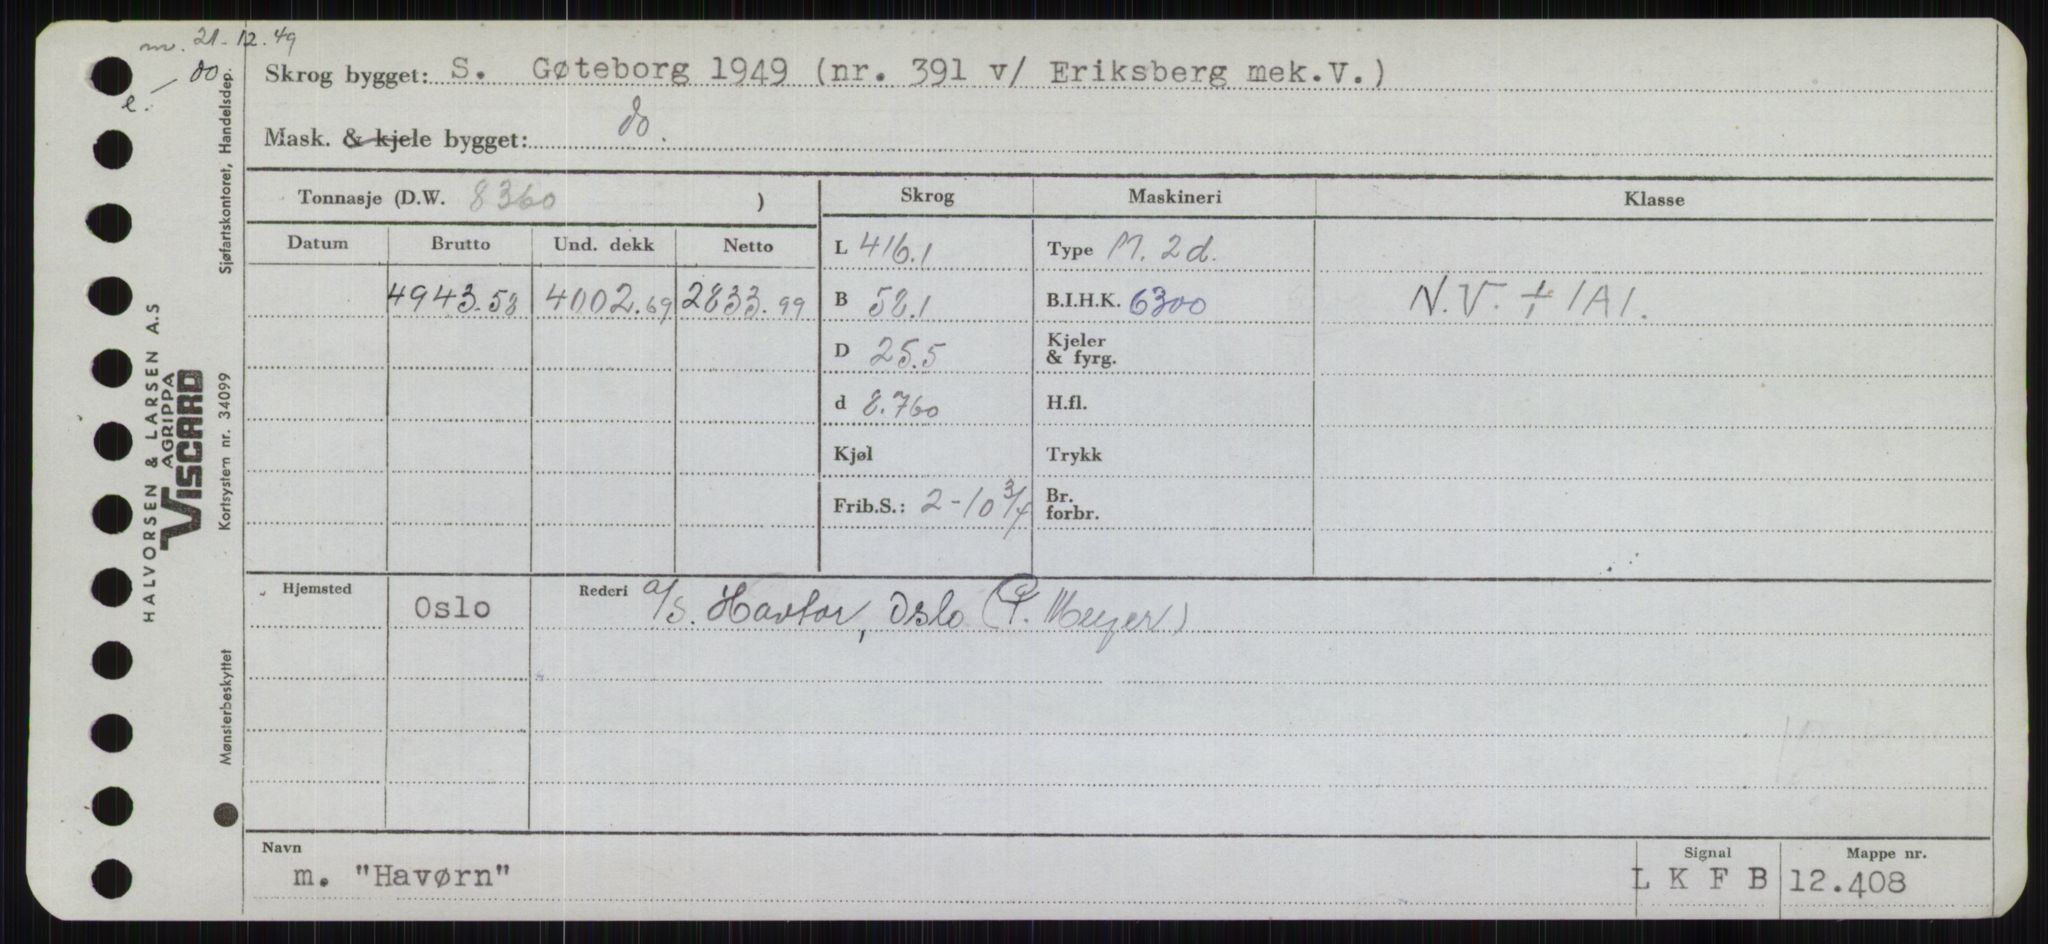 m. 21-12.49
e. — do
Skrog bygget: S. Gøteborg 1949 (nr. 391 v/ Eriksberg mek.V.)
Mask. & kjele bygget: do.
Tonnasje (D.W. 8360 )
Skrog Maskineri Klasse
Datum Brutto Und. dekk Netto
L 416.1 Type M. 2 d.
4943.58 4002.69 2833.99
B 58.1 B.I.H.K. 6300 N.V. + 1A1.
D 25.5 Kjeler
& fyrg.
d 8.760 H.fl.
Kjøl Trykk
Frib.S.: 2-10 3/4 Br.
forbr.
Hjemsted Oslo Rederi a/s. Havtor, Oslo (P. Meyer)
Navn m. "Havørn"
Signal L K F B
Mappe nr. 12.408
Sjøfartskontoret, Handelsdep.
Kortsystem nr. 34099
Mønsterbeskyttet
HALVORSEN & LARSEN A.S
AGRIPPA
VISCARD